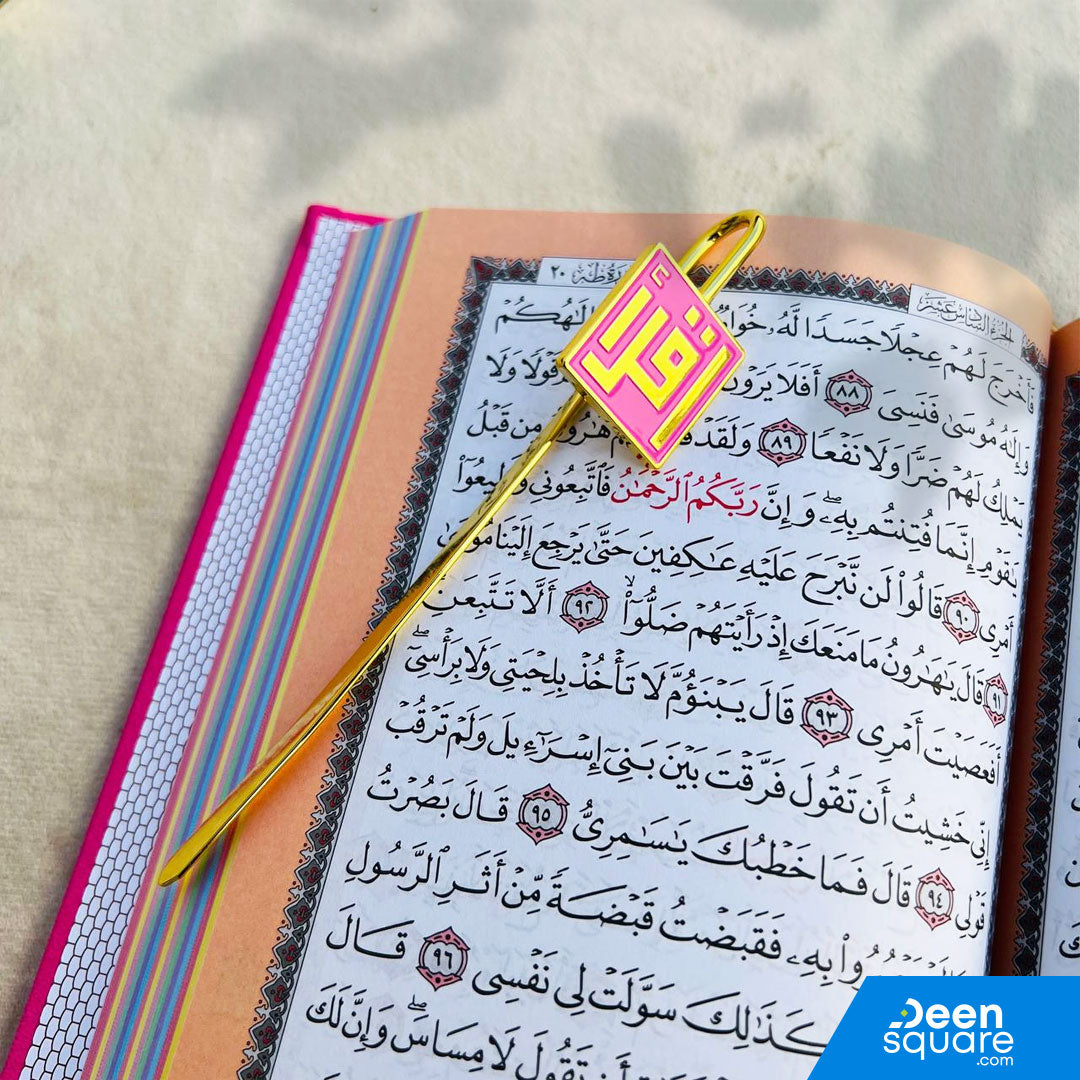 ٢٠ سُورَةُ طٰهٰ
الجُزْءُ السَّادِسُ عَشَرَ
فَأَخْرَجَ لَهُمْ عِجْلًا جَسَدًا لَّهُۥ إِلَٰهُكُمْ
وَإِلَٰهُ مُوسَىٰ فَنَسِىَ ٨٨ أَفَلَا يَرَوْنَ قَوْلًا وَلَا
يَمْلِكُ لَهُمْ ضَرًّا وَلَا نَفْعًا ٨٩ وَلَقَدْ هَٰرُونُ مِن قَبْلُ
يَٰقَوْمِ إِنَّمَا فُتِنتُم بِهِۦ ۖ وَإِنَّ رَبَّكُمُ ٱلرَّحْمَٰنُ فَٱتَّبِعُونِى وَأَطِيعُوٓا۟
أَمْرِى ٩٠ قَالُوا۟ لَن نَّبْرَحَ عَلَيْهِ عَٰكِفِينَ حَتَّىٰ يَرْجِعَ إِلَيْنَا مُوسَىٰ
٩١ قَالَ يَٰهَٰرُونُ مَا مَنَعَكَ إِذْ رَأَيْتَهُمْ ضَلُّوٓا۟ ٩٢ أَلَّا تَتَّبِعَنِ
أَفَعَصَيْتَ أَمْرِى ٩٣ قَالَ يَبْنَؤُمَّ لَا تَأْخُذْ بِلِحْيَتِى وَلَا بِرَأْسِىٓ ۖ
إِنِّى خَشِيتُ أَن تَقُولَ فَرَّقْتَ بَيْنَ بَنِىٓ إِسْرَٰٓءِيلَ وَلَمْ تَرْقُبْ
قَوْلِى ٩٤ قَالَ فَمَا خَطْبُكَ يَٰسَٰمِرِىُّ ٩٥ قَالَ بَصُرْتُ
بِهِۦ فَقَبَضْتُ قَبْضَةً مِّنْ أَثَرِ ٱلرَّسُولِ
كَذَٰلِكَ سَوَّلَتْ لِى نَفْسِى ٩٦ قَالَ
أَن تَقُولَ لَا مِسَاسَ ۖ وَإِنَّ لَكَ
Deen
square
.com